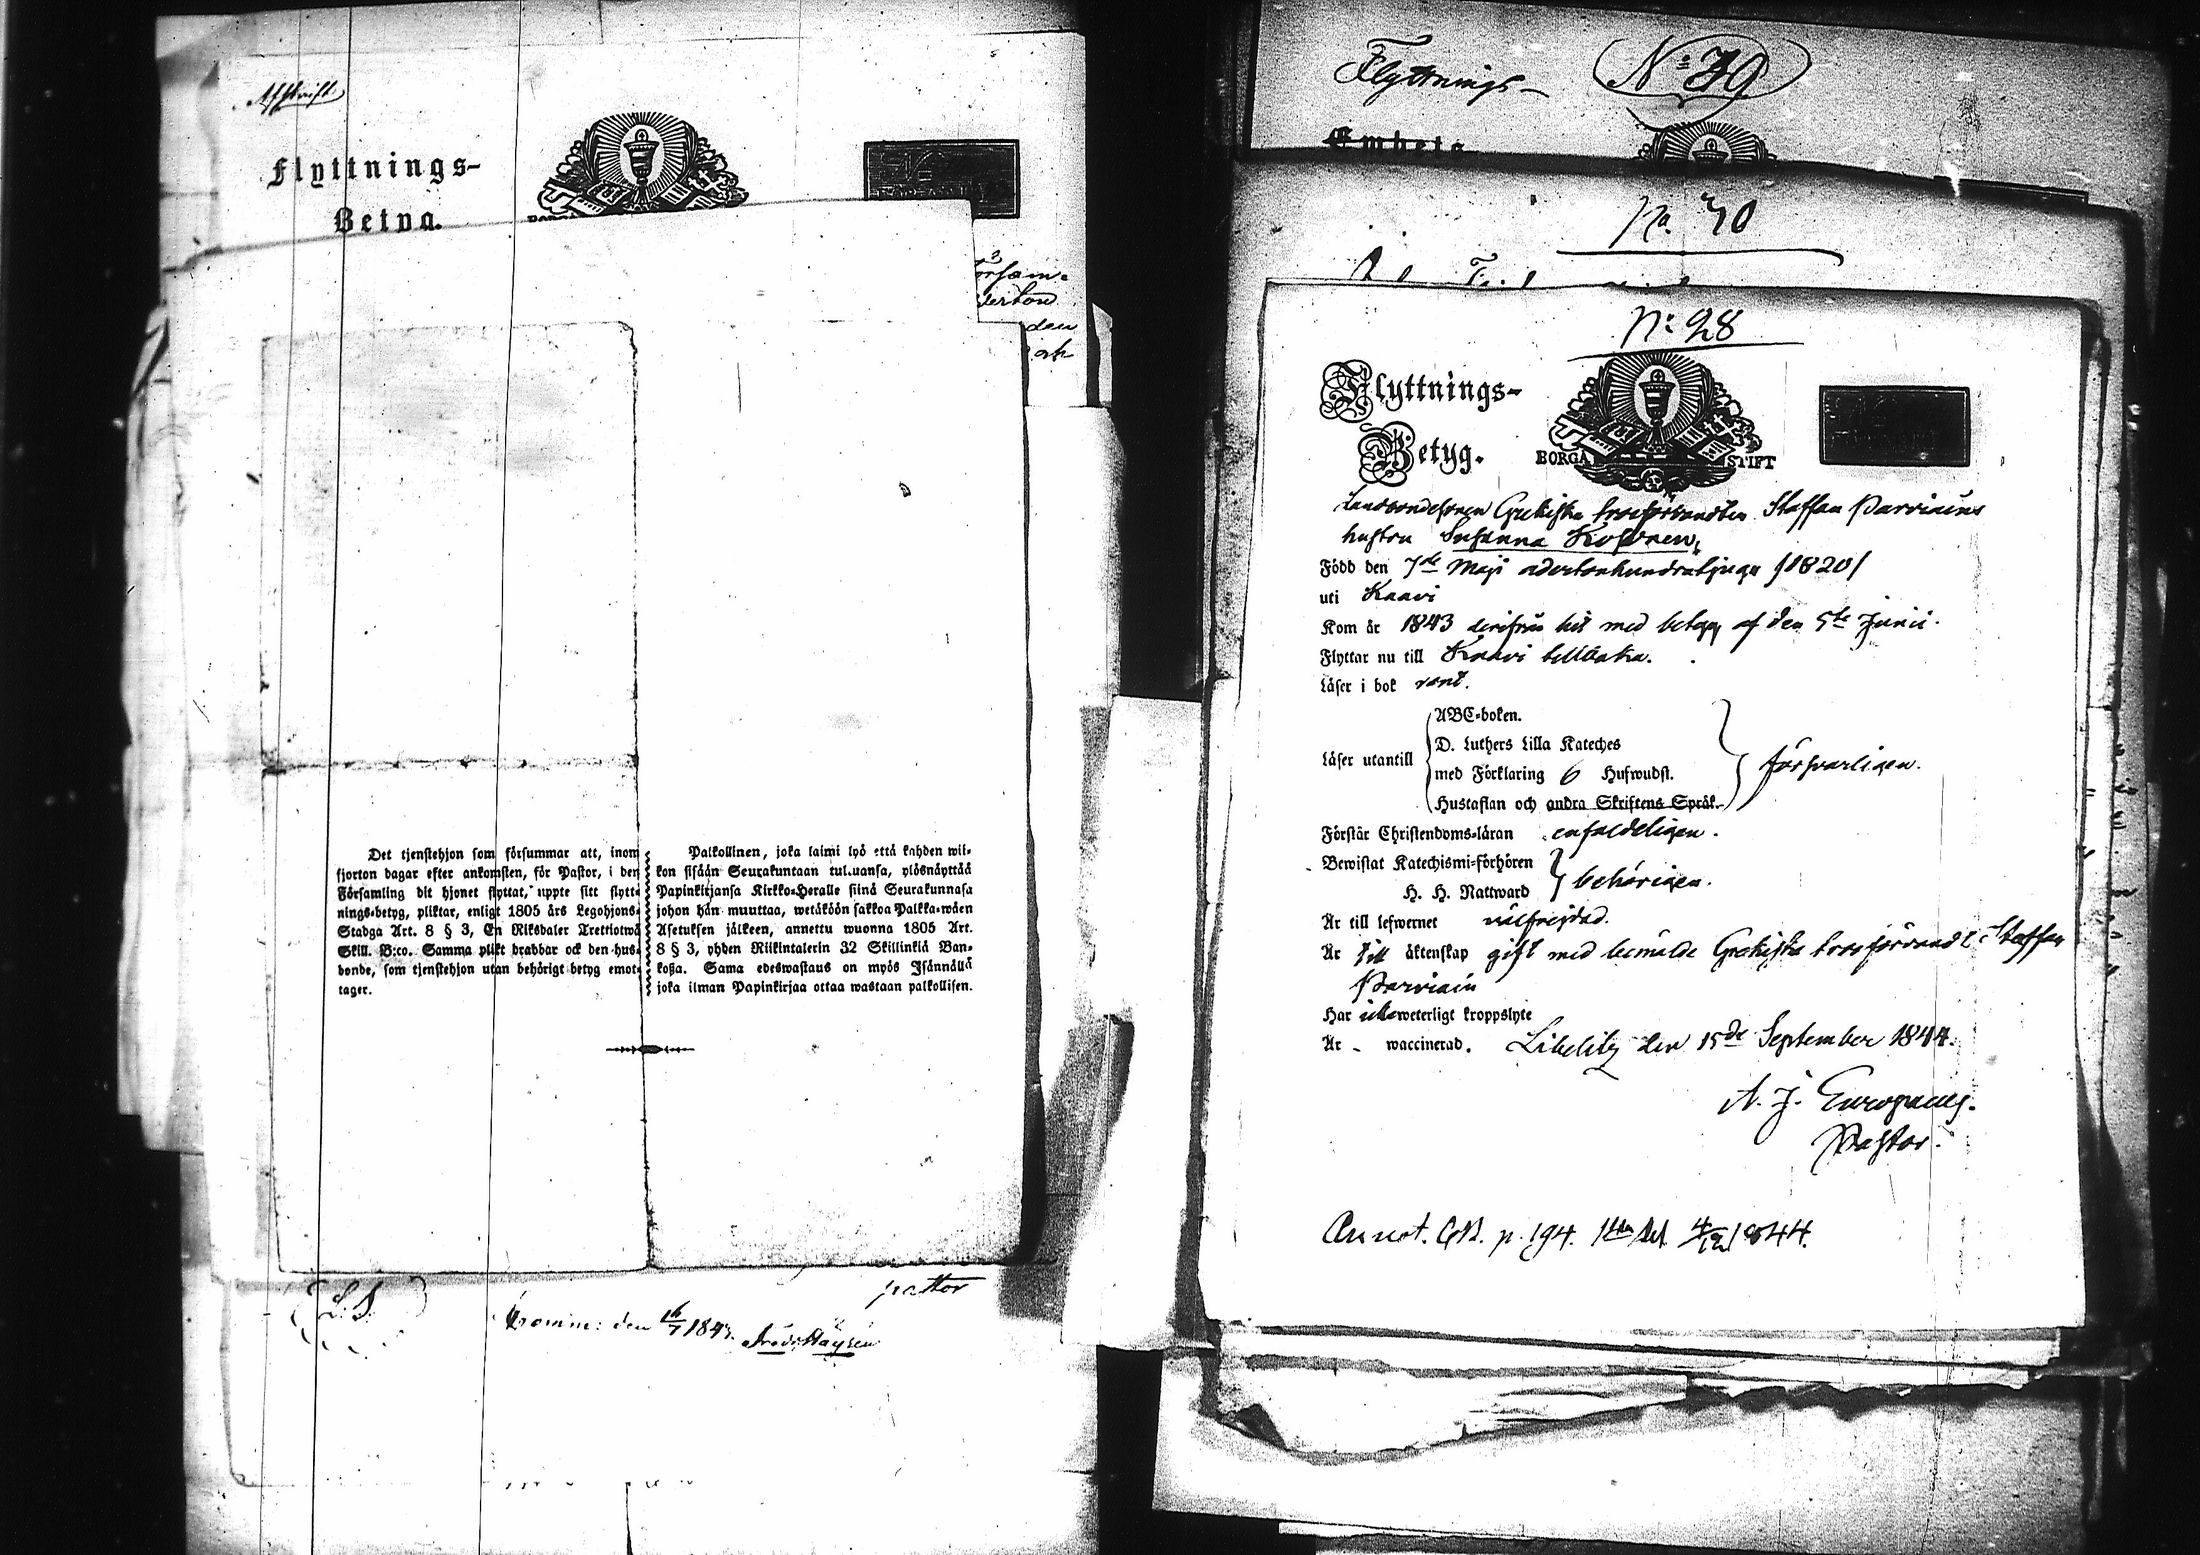 Afskrift
Flyttnings-
Betyg.
den
och
Det tjenstehjon som försummar att, inom
fjorton dagar efter ankomsten, för Pastor, i den
Församling dit hjonet flyttat, uppte sitt flytt-
nings-betyg, pliktar, enligt 1805 års Legohjons-
Stadga Art. 8 § 3, En Riksdaler Trettiotwå
Skill. B:co. Samma plikt drabbar ock den hus-
bonde, som tjenstehjon utan behörigt betyg emot-
tager.
Palkollinen, joka laimi lyö että kahden wii-
kon sisään Seurakuntaan tultuansa, ylösnäyttää
Papinkirjansa Kirkko-Heralle siinä Seurakunnasa
johon hän muuttaa, wetäköön sakkoa Palkka-wäen
Asetuksen jälkeen, annettu wuonna 1805 Art.
8 § 3, yhden Riikintalerin 32 Skillinkiä Ban-
koßa. Sama edeswastaus on myös Isännällä
joka ilman Papinkirjaa ottaa wastaan palkollisen.
pastor
L. S.
den 1843.
Flyttnings- N:o 39
Embets
No. 30
N:o 28
Flyttnings-
Betyg.
BORGÅ STIFT
Landbondesonen Grekiska trosförvandten Staffan Parviains
hustru Susanna Kosonen,
Född den 7de Maji adertonhundratjugu /1820/
uti Kaavi
Kom år 1843 derifrån hit med betyg af den 5te Junii.
Flyttar nu till Kaavi tillbaka.
Läser i bok rent.
Läser utantill
ABC-boken.
D. Luthers Lilla Kateches
med Förklaring 6 Hufwudst.
Hustaflan och andra Skriftens Språk
försvarligen.
Förstår Christendoms-läran enfaldeligen.
Bewistat Katechismi-förhören
H. H. Nattward
behörigen.
Är till lefwernet välfrejdad.
Är till äktenskap gift med bemälde Grekiska trosförvandt Staffan
Parviain
Har icke weterligt kroppslyte
Är - waccinerad. Libelitz den 15de September 1844.
A. J. Europaeus.
Pastor.
Annot. CB. p. 194. 1844.